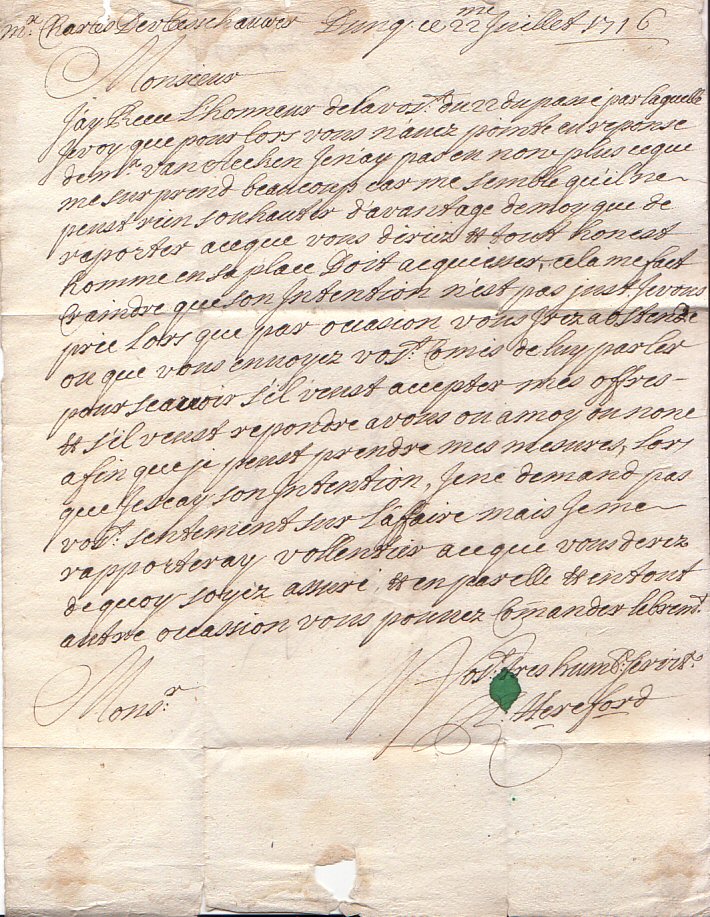 Mr. Charles Dunq. ce 22me Juillet 1716
Monsieur
J'ay Receu L'honneur de la vost. du 22 du passé par laquelle
je voy que pour lors vous n'aviez pointe eu reponse
de mr. van Jen'ay pas eu non plus ce que
me surprend beaucoup car me semble qu'il ne
peust rien souhauter d'avantage de moy que de
raporter a ce que vous direz & tout honest
homme en sa place Doit acquiesser, cela me fait
Craindre que son Intention n'est pas just. Je vous
prie Lors que par occasion vous irez a ostende
ou que vous ennoyez vost. Comis de luy parler
pour scavoir s'il veust accepter mes offres
& s'il veust repondre a vous ou a moy ou none
afin que je peust prendre mes mesures, lors
que Je scay son Intention, Je ne demand pas
vost. sentement sur l'affaire mais Je me
rapporteray vollentier a ce que vous direz
de quoy soyez assuré, & en parelle & en tout
autre occassion vous pouvez Comander
Vost. tres humb. servitr.
Monsr. Hereford